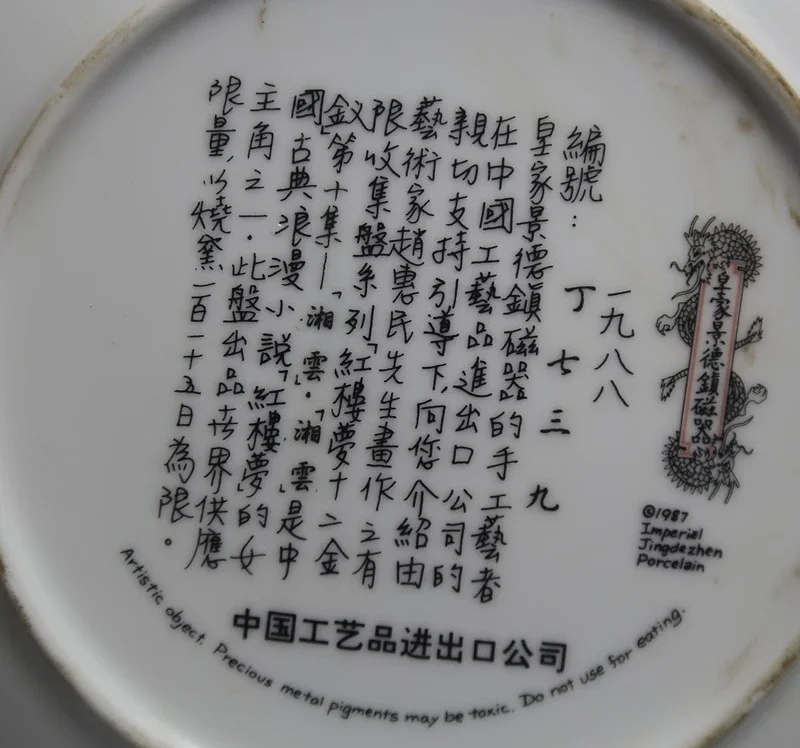 皇家景德鎮磁器
©1987
Imperial
Jingdezhen
Porcelain
編號：
一九八八
丁七三九
皇家景德鎮磁器的手工藝者
在中國工藝品進出口公司的
親切支持引導下，向您介紹由
藝術家趙惠民先生畫作之有
限收集盤系列「紅樓夢十二金
釵」第十集—「湘雲」。「湘雲」是中
國古典浪漫小說「紅樓夢」的女
主角之一．此盤出品世界供應
限量，以燒窯一百一十五日為限。
中国工艺品进出口公司
Artistic object. Precious metal pigments may be toxic. Do not use for eating.